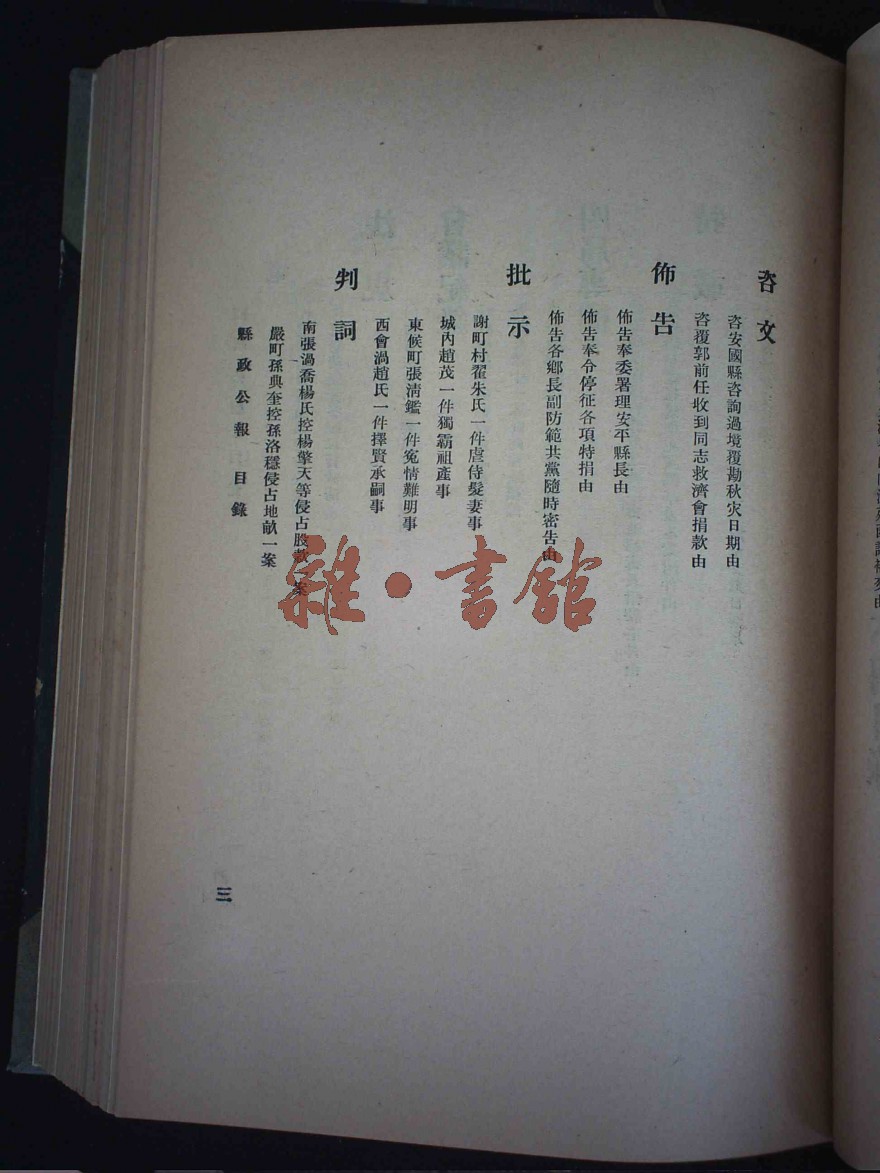 咨文
咨安國縣咨詢過境覆勘秋灾日期由
咨覆郭前任收到同志救濟會捐款由
佈告
佈告奉委署理安平縣長由
佈告奉令停征各項特捐由
佈告各鄉長副防範共黨隨時密告由
批示
謝町村翟朱氏一件虐待髮妻事
城內趙茂一件獨霸祖產事
東候町張淸鑑一件寃情難明事
西會渦趙氏一件擇賢承嗣事
判詞
南張渦喬楊氏控楊擎天等侵占股款一案
嚴町孫典奎控孫洛穩侵占地畝一案
縣政公報目錄
三
雜·書館